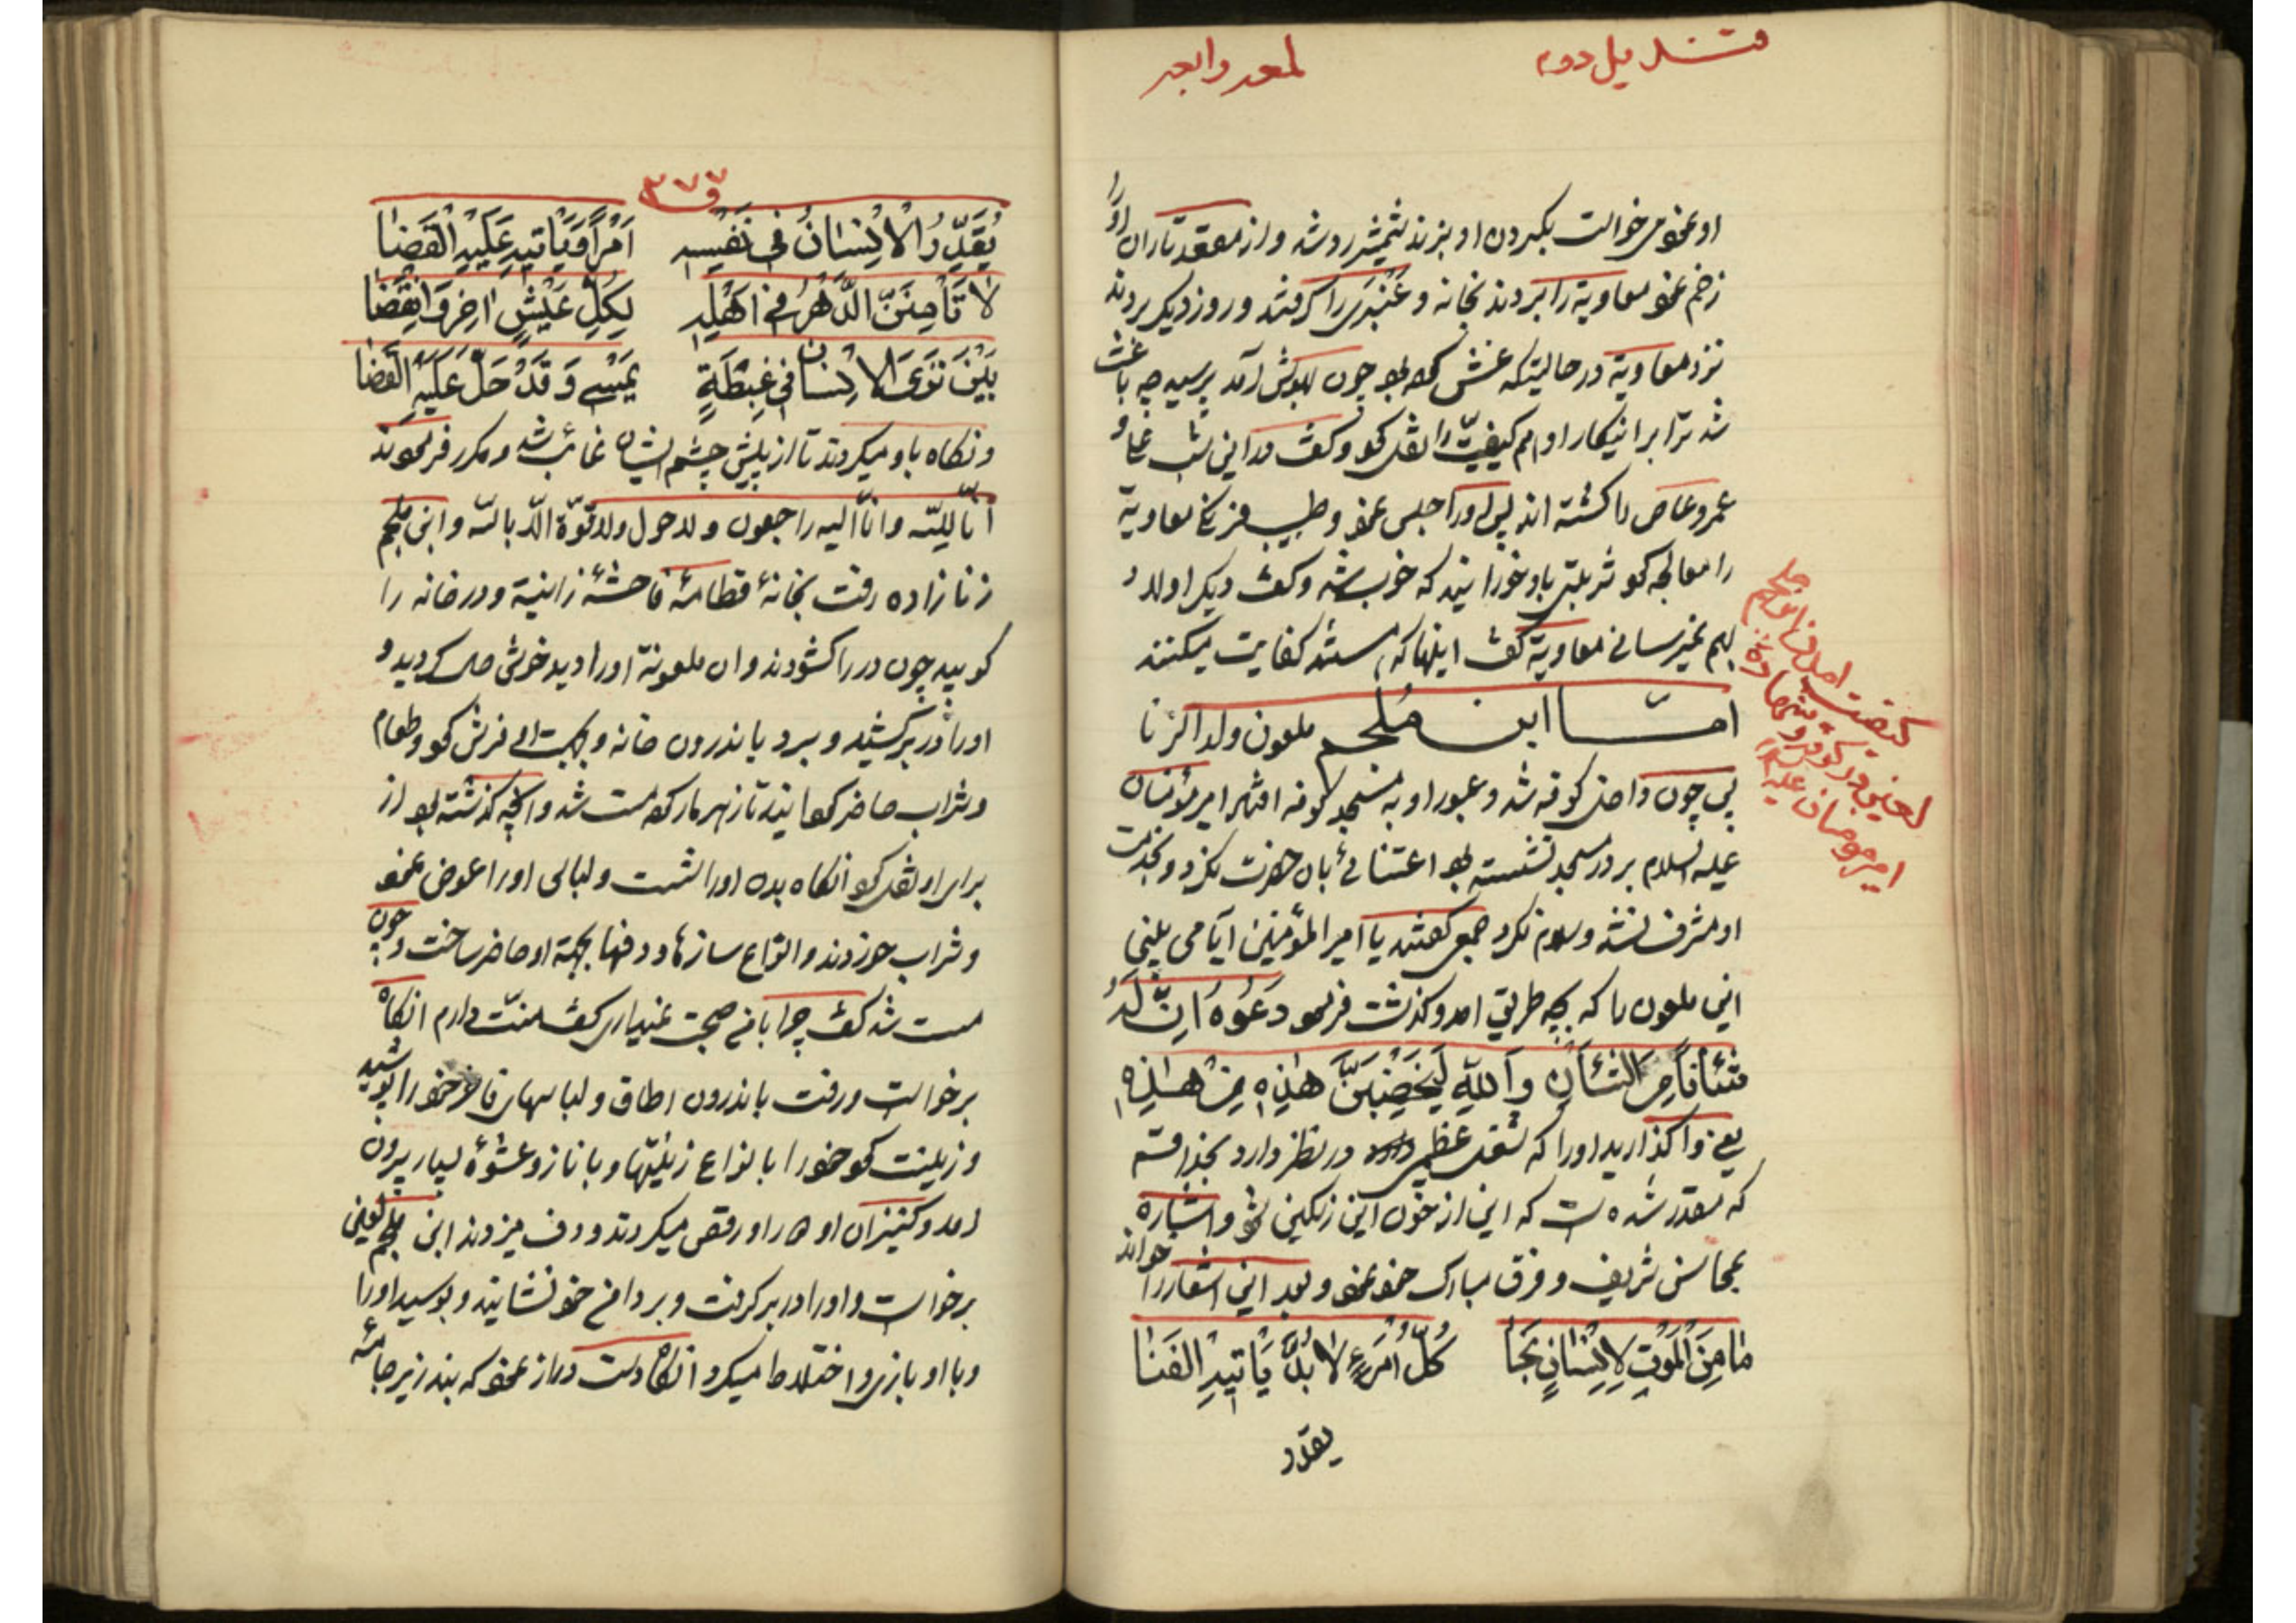 قندیل دوم
لمعه رابعه
او نمود می‌خواست بگردن او بزند شمشیر رد شد و از مقعد تا ران او را
زخم نمود معاویة را بردند بخانه و عنبری را گرفتند و روز دیگر بردند
نزد معاویة در حالیتکه غش کرده بود چون بهوش آمد پرسید چه باعث
شد ترا بر اینکار او هم کیفیّت را نقل کرد و گفت در این شب
عمرو عاص را کشته اند پس او را حبس نمود و طبیب معاویة
را معالجه کرد شربتی باو خورانید که خوب شد و گفت دیگر اولاد
بهم نمیرسانی معاویة گفت اینها که هستند کفایت میکنند
امّا ابن ملجم ملعون ولد الزنا
پس چون داخل کوفه شد و عبور او به مسجد کوفه افتاد امیر مؤمنان
علیه السلام بر در مسجد نشسته بود اعتنائی بان حضرت نکرد و بخدمت
او مشرف نشد و سلام نکرد جمعی گفتند یا امیر المؤمنین آیا می بینی
این ملعون را که بچه طریق امد و گذشت فرمود دَعُوهُ اِنَّ لَهُ
شَأناً مِنَ الشَّأنِ وَاللّهِ لَيَخضِبَنَّ هٰذِهِ مِنْ هٰذِهِ
یعنی واگذارید او را که شغل عظیمی در نظر دارد بخدا قسم
که مقدر شده است که این از خون این رنگین شود و اشاره
بمحاسن شریف و فرق مبارک خود نمود و بعد این اشعار را خواند
مَا مِنَ المَوْتِ لِاِنْسَانٍ نَجَا كُلُّ امْرَءٍ لَا بُدَّ يَأتِيهِ الفَنَا
یقدر
کیفیت امدن ابن ملجم
لعین در کوفه و شهادت
امیر مومنان علیه السلام
۳۷۷
يُقَدِّرُ الْاِنْسَانُ فِي نَفْسِهِ اَمْراً وَيَأتِيهِ عَلَيْهِ الْقَضَا
لَا تَأمِنَنَّ الدَّهْرَ فِي اَهْلِهِ لِكُلِّ عَيْشٍ اٰخِرٌ وَانْقِضَا
بَيْنَ تَرَى الْاِنْسَانَ فِي غِبْطَةٍ يُمْسِي وَقَدْ حَلَّ عَلَيْهِ القَضَا
و نگاه باو میکردند تا از پیش چشم ایشان غائب شد و مکرر فرمودند
انّا للّه و انّا الیه راجعون و لا حول ولا قوّة الّا باللّه و ابن ملجم
زنا زاده رفت بخانۀ قطامۀ فاحشۀ زانیة و در خانه را
کوبید چون در را گشودند و ان ملعونة او را دید خوش حال گردید و
او را در بر کشید و ببرد باندرون خانه و بجهت او فرش کرد و طعام
و شراب حاضر گردانید تا زهر مار کرد مست شد و انچه گذشته بود از
برای او نقل کرد انگاه بدن او را شست و لباس او را عوض نمود
و شراب خوردند و انواع سازها و دفها بجهة او حاضر ساخت و چون
مست شد گفت چرا با من صحبت نمیداری گفت منّت دارم انگاه
برخواست و رفت باندرون اطاق و لباسهای فاخر خود را پوشید
و زینت کرد خود را بانواع زینتها و با ناز و عشوۀ بسیار بیرون
امد و کنیزان او همراه او رقص میکردند و دف میزدند ابن ملجم لعین
برخواست و او را در بر گرفت و بر دامن خود نشانید و بوسید او را
و با او بازی و اختلاط میکرد انگاه دست دراز نمود که بند زیر جامۀ